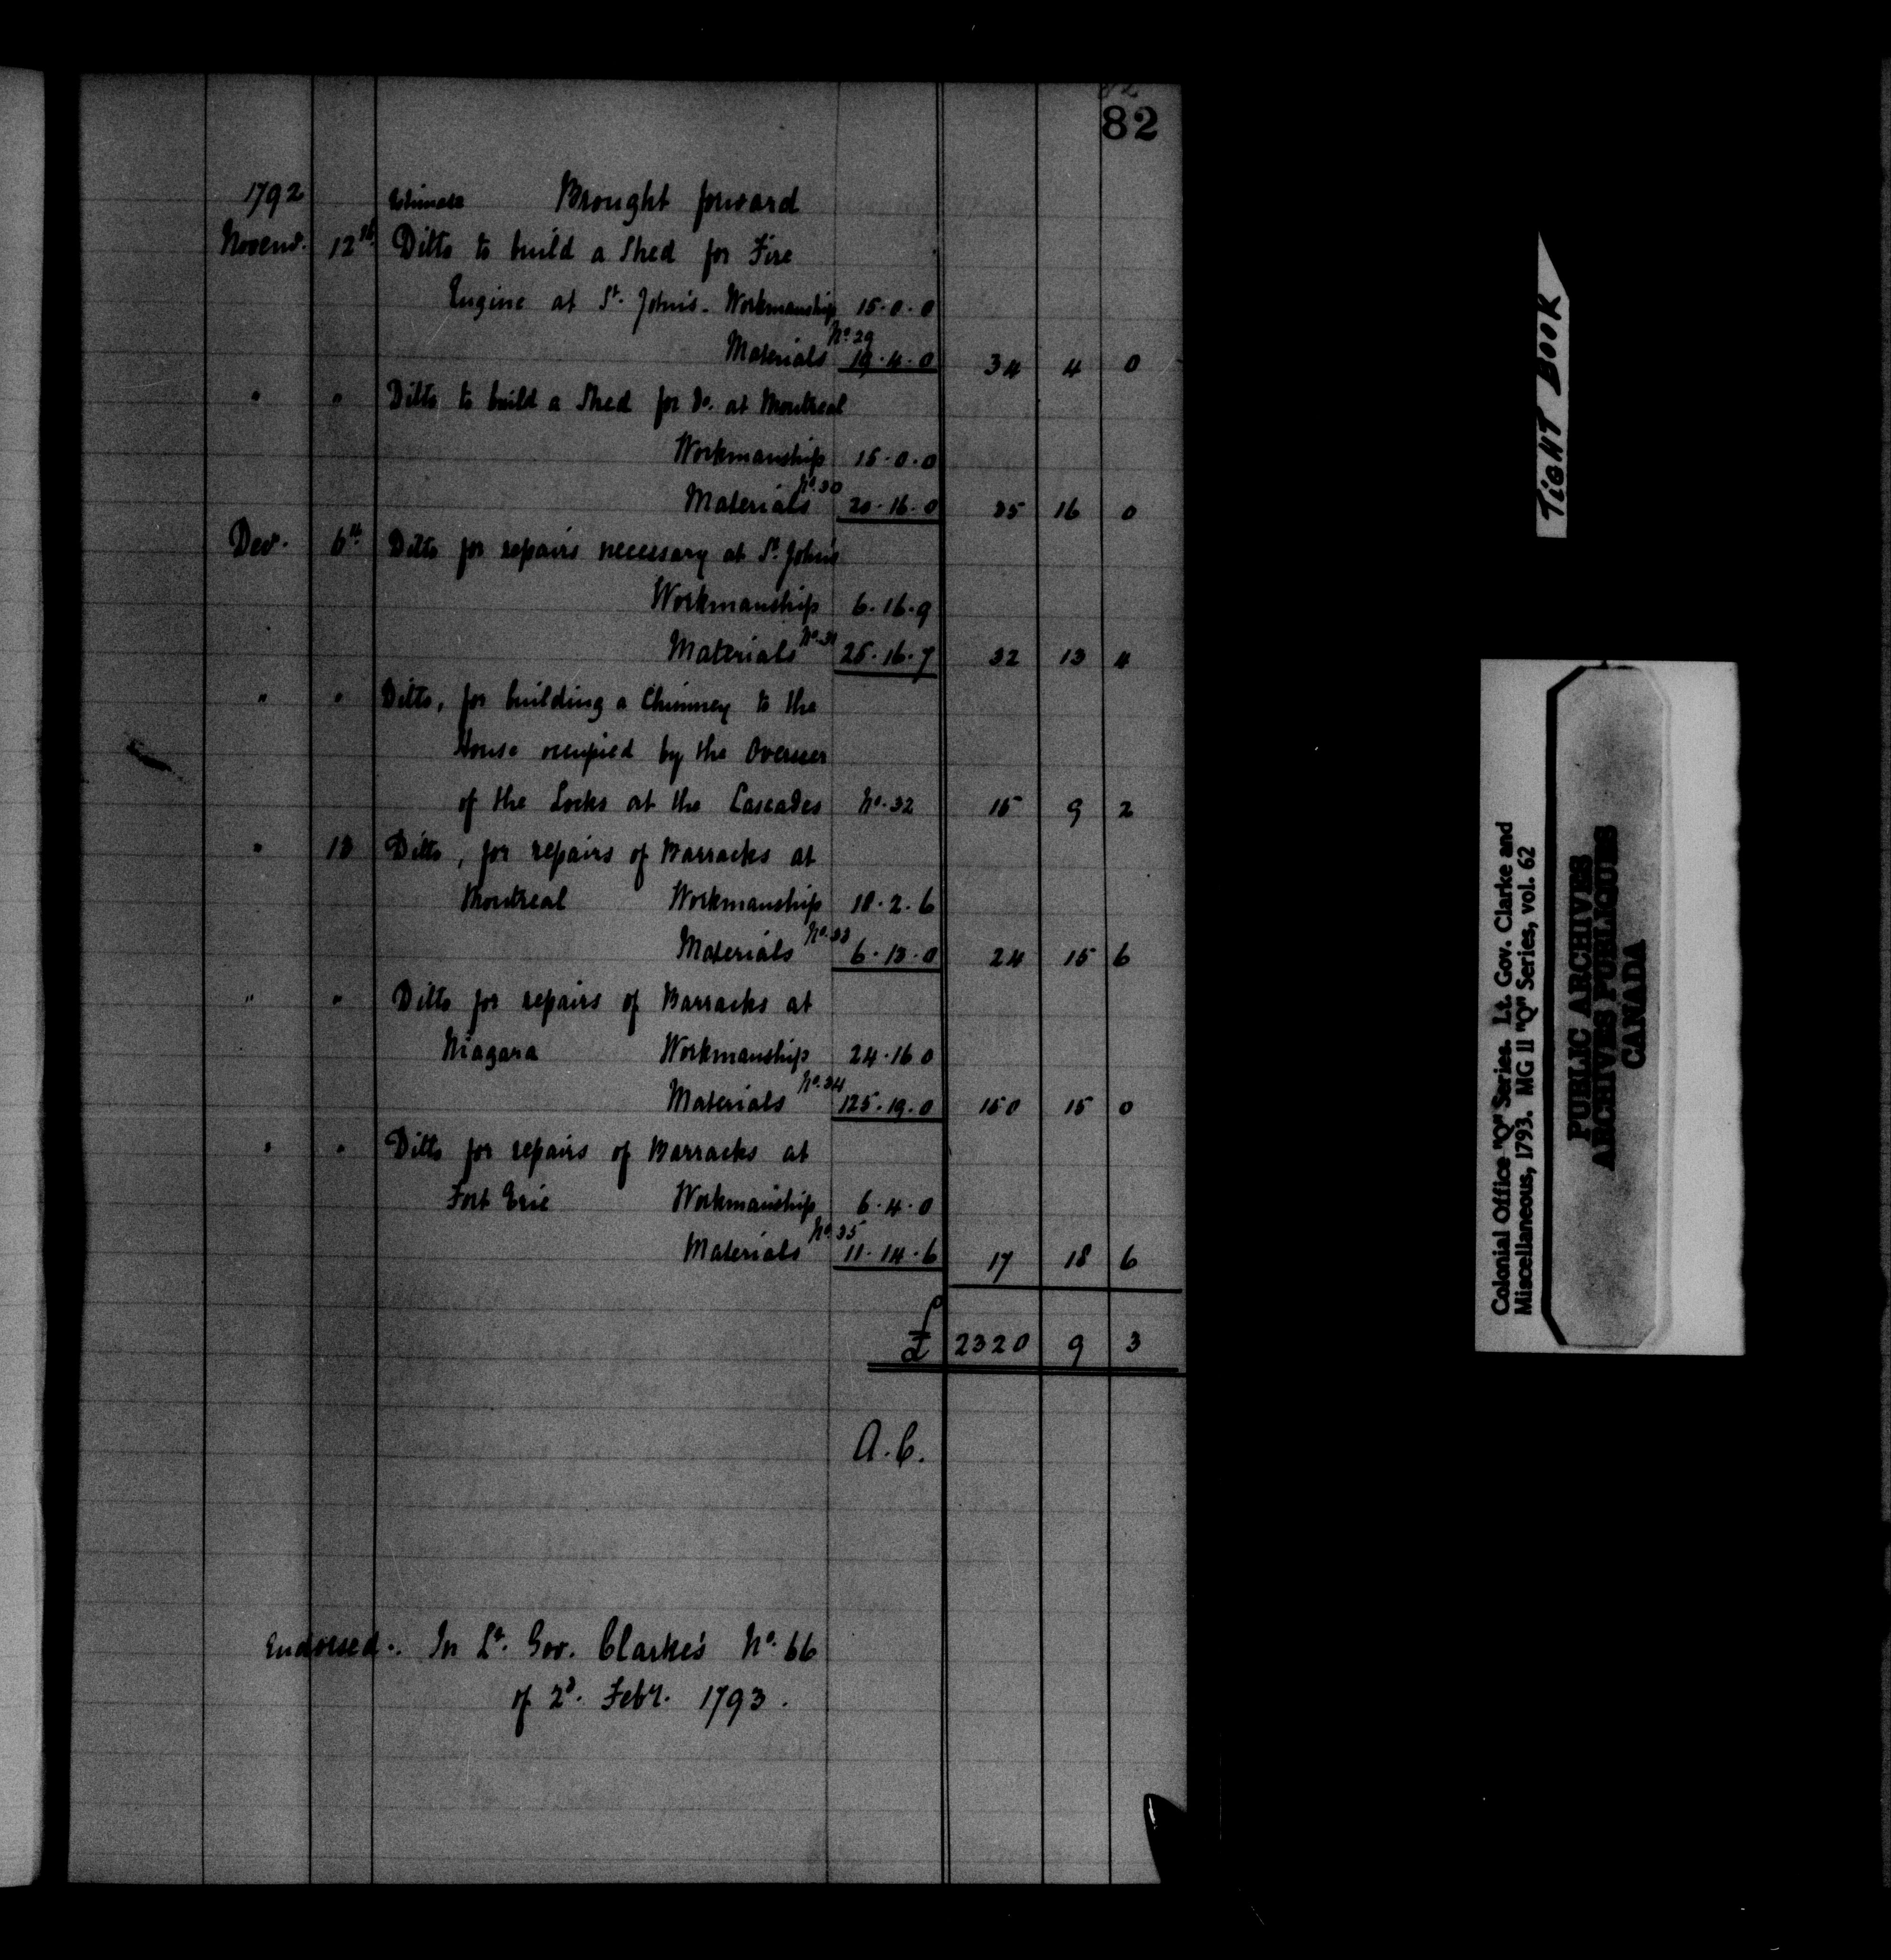 82
1792 Estimate Brought forward
Novemr. 12th Ditto to build a Shed for Fire
Engine at St. John's - Workmanship 15.0.0
Materials No. 29 19.4.0 34 4 0
" " Ditto to build a Shed for Do. at Montreal
Workmanship 15.0.0
Materials No. 30 20.16.0 35 16 0
Decr. 6th Ditto for repairs necessary at St. John's
Workmanship 6.16.9
Materials No. 31 25.16.7 32 13 4
" " Ditto, for building a Chimney to the
House occupied by the Overseer
of the Locks at the Cascades No. 32 15 9 2
" 13 Ditto, for repairs of Barracks at
Montreal Workmanship 18.2.6
Materials No. 33 6.13.0 24 15 6
" " Ditto for repairs of Barracks at
Niagara Workmanship 24.16.0
Materials No. 34 125.19.0 150 15 0
" " Ditto for repairs of Barracks at
Fort Erie Workmanship 6.4.0
Materials No. 35 11.14.6 17 18 6
£ 2320 9 3
A.C.
Endorsed. In Lt. Gov. Clarke's No. 66
of 2d. Feby. 1793.
TIGHT BOOK
Colonial Office "Q" Series. Lt. Gov. Clarke and
Miscellaneous, 1793. MG 11 "Q" Series, vol. 62
PUBLIC ARCHIVES
ARCHIVES PUBLIQUES
CANADA